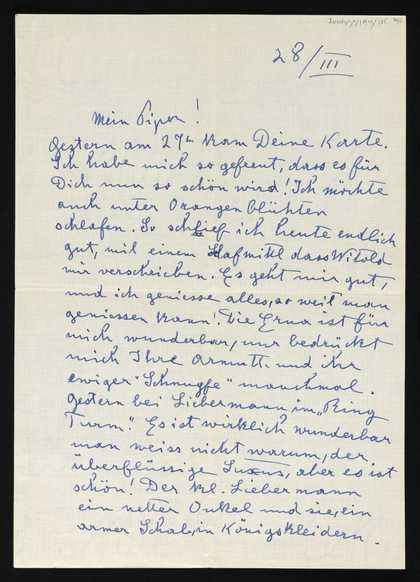 28/III
Mein Piper!
Gestern am 27ten kam Deine Karte.
Ich habe mich so gefreut, dass es für
Dich nun so schön wird! Ich möchte
auch unter Orangenblühten
schlafen. So schlief ich heute endlich
gut, mit einem Schlafmittl dass Witold
mir verschrieben. Es geht mir gut,
und ich geniesse alles, so weil man
geniessen kann! Die Erna ist für
mich wunderbar, nur bedrückt
mich Ihre Armutt. und ihr
ewiger "Schnupfe" manchmal.
Gestern bei Liebermann im „Ring
Turm". Es ist wirklich wunderbar
man weiss nicht warum, der
überflüssige Luxus, aber es ist
schön! Der kl. Liebermann
ein netter Onkel und sie, ein
armer in Königskleidern.